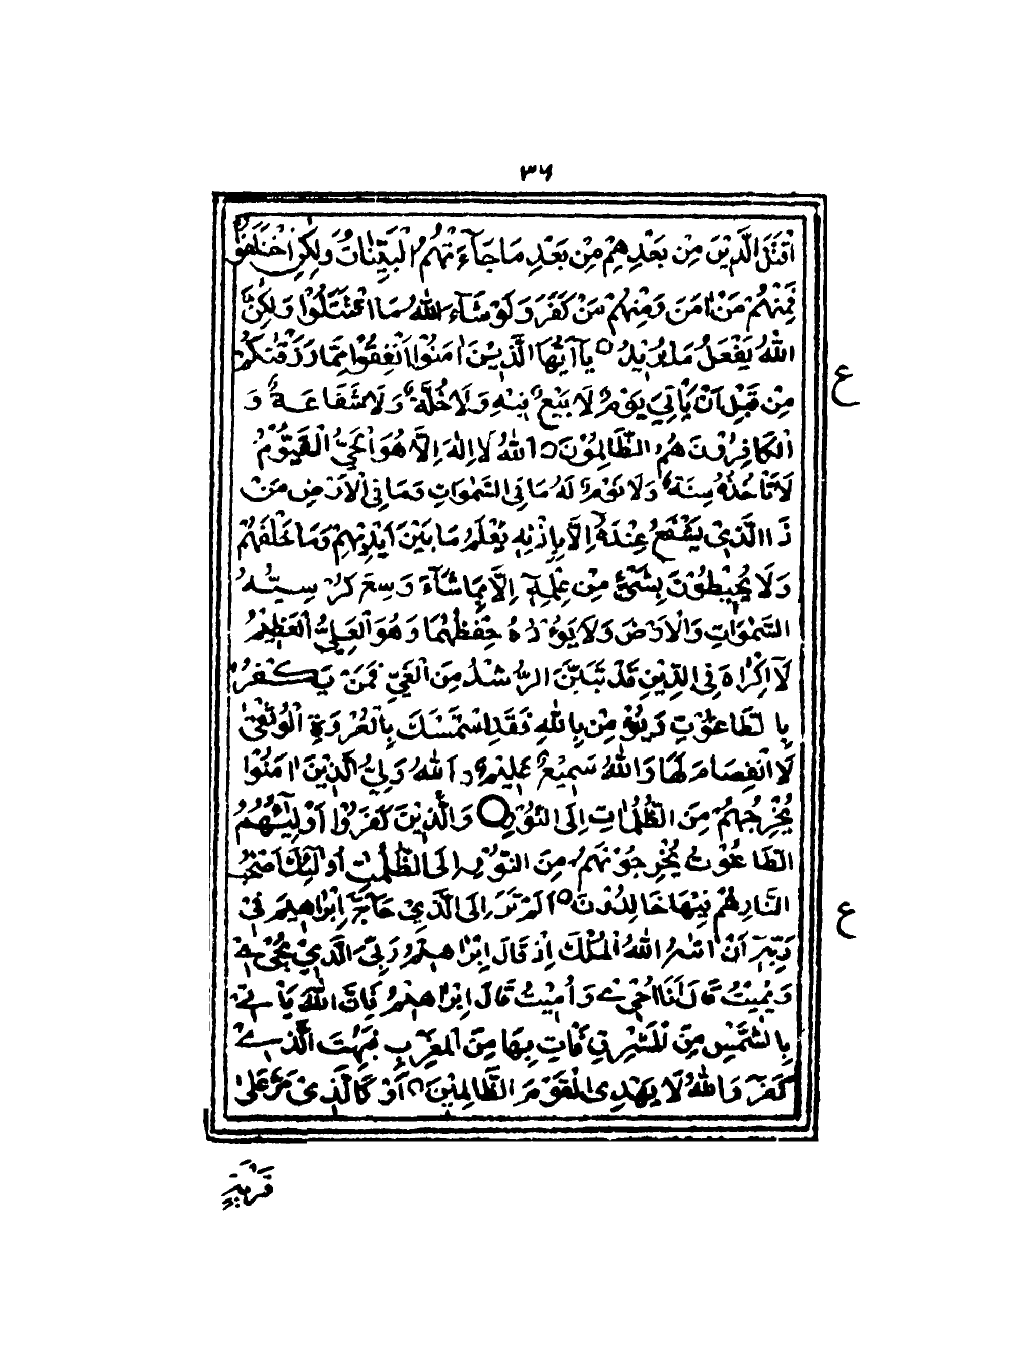 ٣٦
اقْتَتَلَ الَّذِيْنَ مِنْ بَعْدِهِمْ مِّنْ بَعْدِ مَا جَآءَ تْهُمُ الْبَيِّنَاتُ وَلٰكِنِ اخْتَلَفُوْا
فَمِنْهُمْ مَّنْ اٰمَنَ وَمِنْهُمْ مَّنْ كَفَرَ وَلَوْ شَآءَ اللّٰهُ مَا اقْتَتَلُوْا وَلٰكِنَّ
اللّٰهَ يَفْعَلُ مَا يُرِيْدُ ○ يَآ اَيُّهَا الَّذِيْنَ اٰمَنُوْا اَنْفِقُوْا مِمَّا رَزَقْنٰكُمْ
ع
مِنْ قَبْلِ اَنْ يَّاْتِيَ يَوْمٌ لَا بَيْعٌ فِيْهِ وَلَا خُلَّةٌ وَلَا شَفَاعَةٌ وَ
الْكَافِرُوْنَ هُمُ الظَّالِمُوْنَ ○ اَللّٰهُ لَا اِلٰهَ اِلَّا هُوَ الْحَيُّ الْقَيُّوْمُ
لَا تَاْخُذُهٗ سِنَةٌ وَلَا نَوْمٌ لَهٗ مَا فِي السَّمٰوَاتِ وَمَا فِي الْاَرْضِ مَنْ
ذَا الَّذِيْ يَشْفَعُ عِنْدَهٗ اِلَّا بِاِذْنِهٖ يَعْلَمُ مَا بَيْنَ اَيْدِيْهِمْ وَمَا خَلْفَهُمْ
وَلَا يُحِيْطُوْنَ بِشَيْءٍ مِّنْ عِلْمِهٖ اِلَّا بِمَا شَآءَ وَسِعَ كُرْسِيُّهُ
السَّمٰوَاتِ وَالْاَرْضَ وَلَا يَؤُدُهٗ حِفْظُهُمَا وَهُوَ الْعَلِيُّ الْعَظِيْمُ
لَآ اِكْرَاهَ فِي الدِّيْنِ قَدْ تَّبَيَّنَ الرُّشْدُ مِنَ الْغَيِّ فَمَنْ يَكْفُرْ
بِالطَّاغُوْتِ وَيُؤْمِنْ بِاللّٰهِ فَقَدِ اسْتَمْسَكَ بِالْعُرْوَةِ الْوُثْقٰى
لَا انْفِصَامَ لَهَا وَاللّٰهُ سَمِيْعٌ عَلِيْمٌ ○ اَللّٰهُ وَلِيُّ الَّذِيْنَ اٰمَنُوْا
يُخْرِجُهُمْ مِنَ الظُّلُمٰاتِ اِلَى النُّوْرِ ○ وَالَّذِيْنَ كَفَرُوْا اَوْلِيَآئُهُمُ
الطَّاغُوْتُ يُخْرِجُوْنَهُمْ مِنَ النُّوْرِ اِلَى الظُّلُمٰتِ اُولٰٓئِكَ اَصْحٰبُ
النَّارِ هُمْ فِيْهَا خَالِدُوْنَ ○ اَلَمْ تَرَ اِلَى الَّذِيْ حَآجَّ اِبْرَاهِيْمَ فِيْ
ع
رَبِّهٖٓ اَنْ اٰتٰىهُ اللّٰهُ الْمُلْكَ اِذْ قَالَ اِبْرَاهِيْمُ رَبِّيَ الَّذِيْ يُحْيٖ
وَيُمِيْتُ قَالَ اَنَا اُحْيٖ وَاُمِيْتُ قَالَ اِبْرَاهِيْمُ فَاِنَّ اللّٰهَ يَاْتِيْ
بِالشَّمْسِ مِنَ الْمَشْرِقِ فَاْتِ بِهَا مِنَ الْمَغْرِبِ فَبُهِتَ الَّذِيْ
كَفَرَ وَاللّٰهُ لَا يَهْدِى الْقَوْمَ الظَّالِمِيْنَ ○ اَوْ كَالَّذِيْ مَرَّ عَلٰى
قَرْيَةٍ